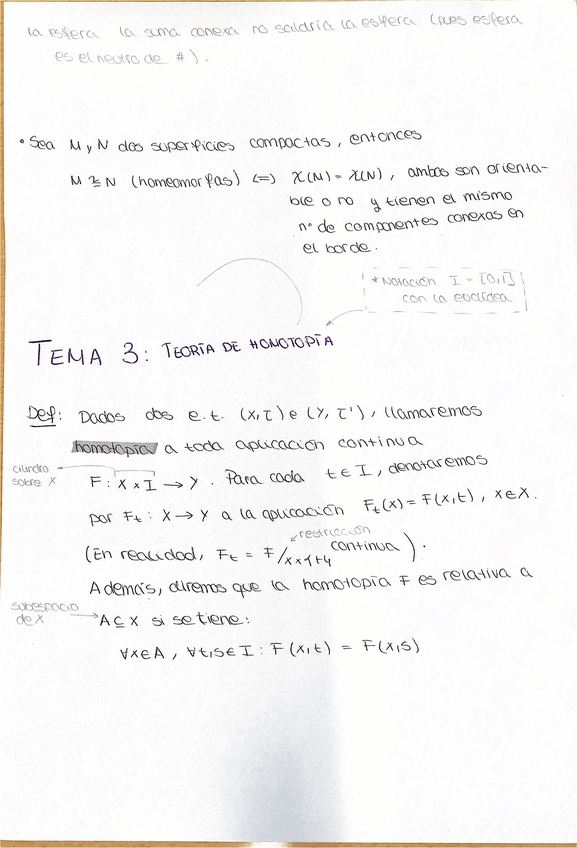 la esfera la suma conexa no saldría la esfera (pues esfera
es el neutro de #).
• Sea M y N dos superficies compactas, entonces
M ≅ N (homeomorfas) <=> χ(M) = χ(N), ambas son orienta-
ble o no y tienen el mismo
nº de componentes conexas en
el borde.
* Notación I = [0,1]
con la euclídea
TEMA 3: TEORÍA DE HOMOTOPÍA
Def: Dados dos e.t. (X,τ) e (Y,τ'), llamaremos
homotopía a toda aplicación continua
cilindro
sobre X
F: X x I → Y. Para cada t ∈ I, denotaremos
por Ft: X → Y a la aplicación Ft(x) = F(x,t), x∈X.
restricción
(En realidad, Ft = F/X×{t} continua).
Además, diremos que la homotopía F es relativa a
subespacio
de X
A ⊆ X si se tiene:
∀x∈A, ∀t,s∈I: F(x,t) = F(x,s)